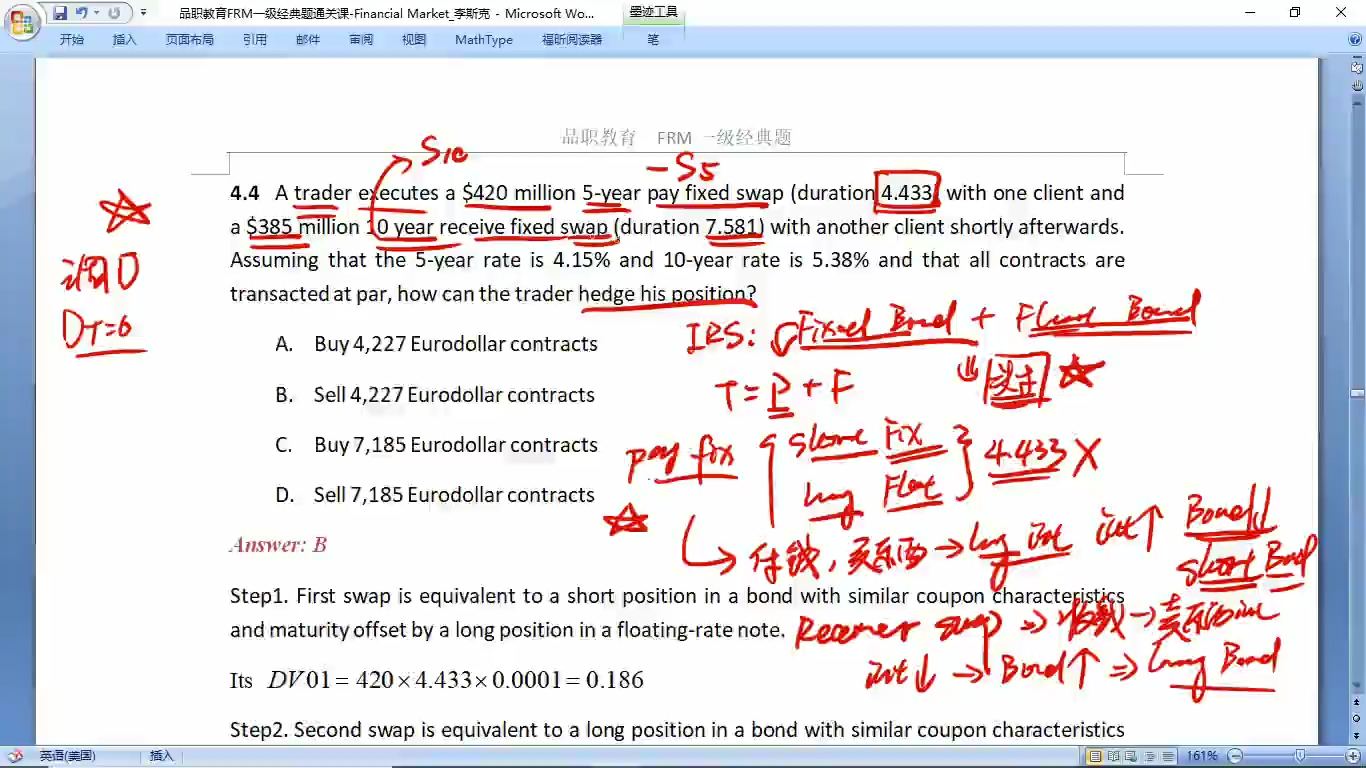 品职教育FRM一级经典题通关课-Financial Market_李斯克 - Microsoft Wo...
墨迹工具
开始 插入 页面布局 引用 邮件 审阅 视图 MathType 福昕阅读器 笔
品职教育 FRM 一级经典题
S10
-S5
4.4 A trader executes a $420 million 5-year pay fixed swap (duration 4.433) with one client and
a $385 million 10 year receive fixed swap (duration 7.581) with another client shortly afterwards.
Assuming that the 5-year rate is 4.15% and 10-year rate is 5.38% and that all contracts are
transacted at par, how can the trader hedge his position?
调D
DT=6
IRS: Fixed Bond + Float Bond
T = P + F
A. Buy 4,227 Eurodollar contracts
B. Sell 4,227 Eurodollar contracts
C. Buy 7,185 Eurodollar contracts
D. Sell 7,185 Eurodollar contracts
pay fix
short Fix
long Float
4.433 X
付钱,买东西→long int
int↑ Bond↓
short Bond
Answer: B
Step1. First swap is equivalent to a short position in a bond with similar coupon characteristics
and maturity offset by a long position in a floating-rate note.
Receiver swap ⇒ 收钱→卖东西 int
int↓ → Bond↑ ⇒ long Bond
Its DV01 = 420×4.433×0.0001 = 0.186
Step2. Second swap is equivalent to a long position in a bond with similar coupon characteristics
英语(美国) 插入 161%